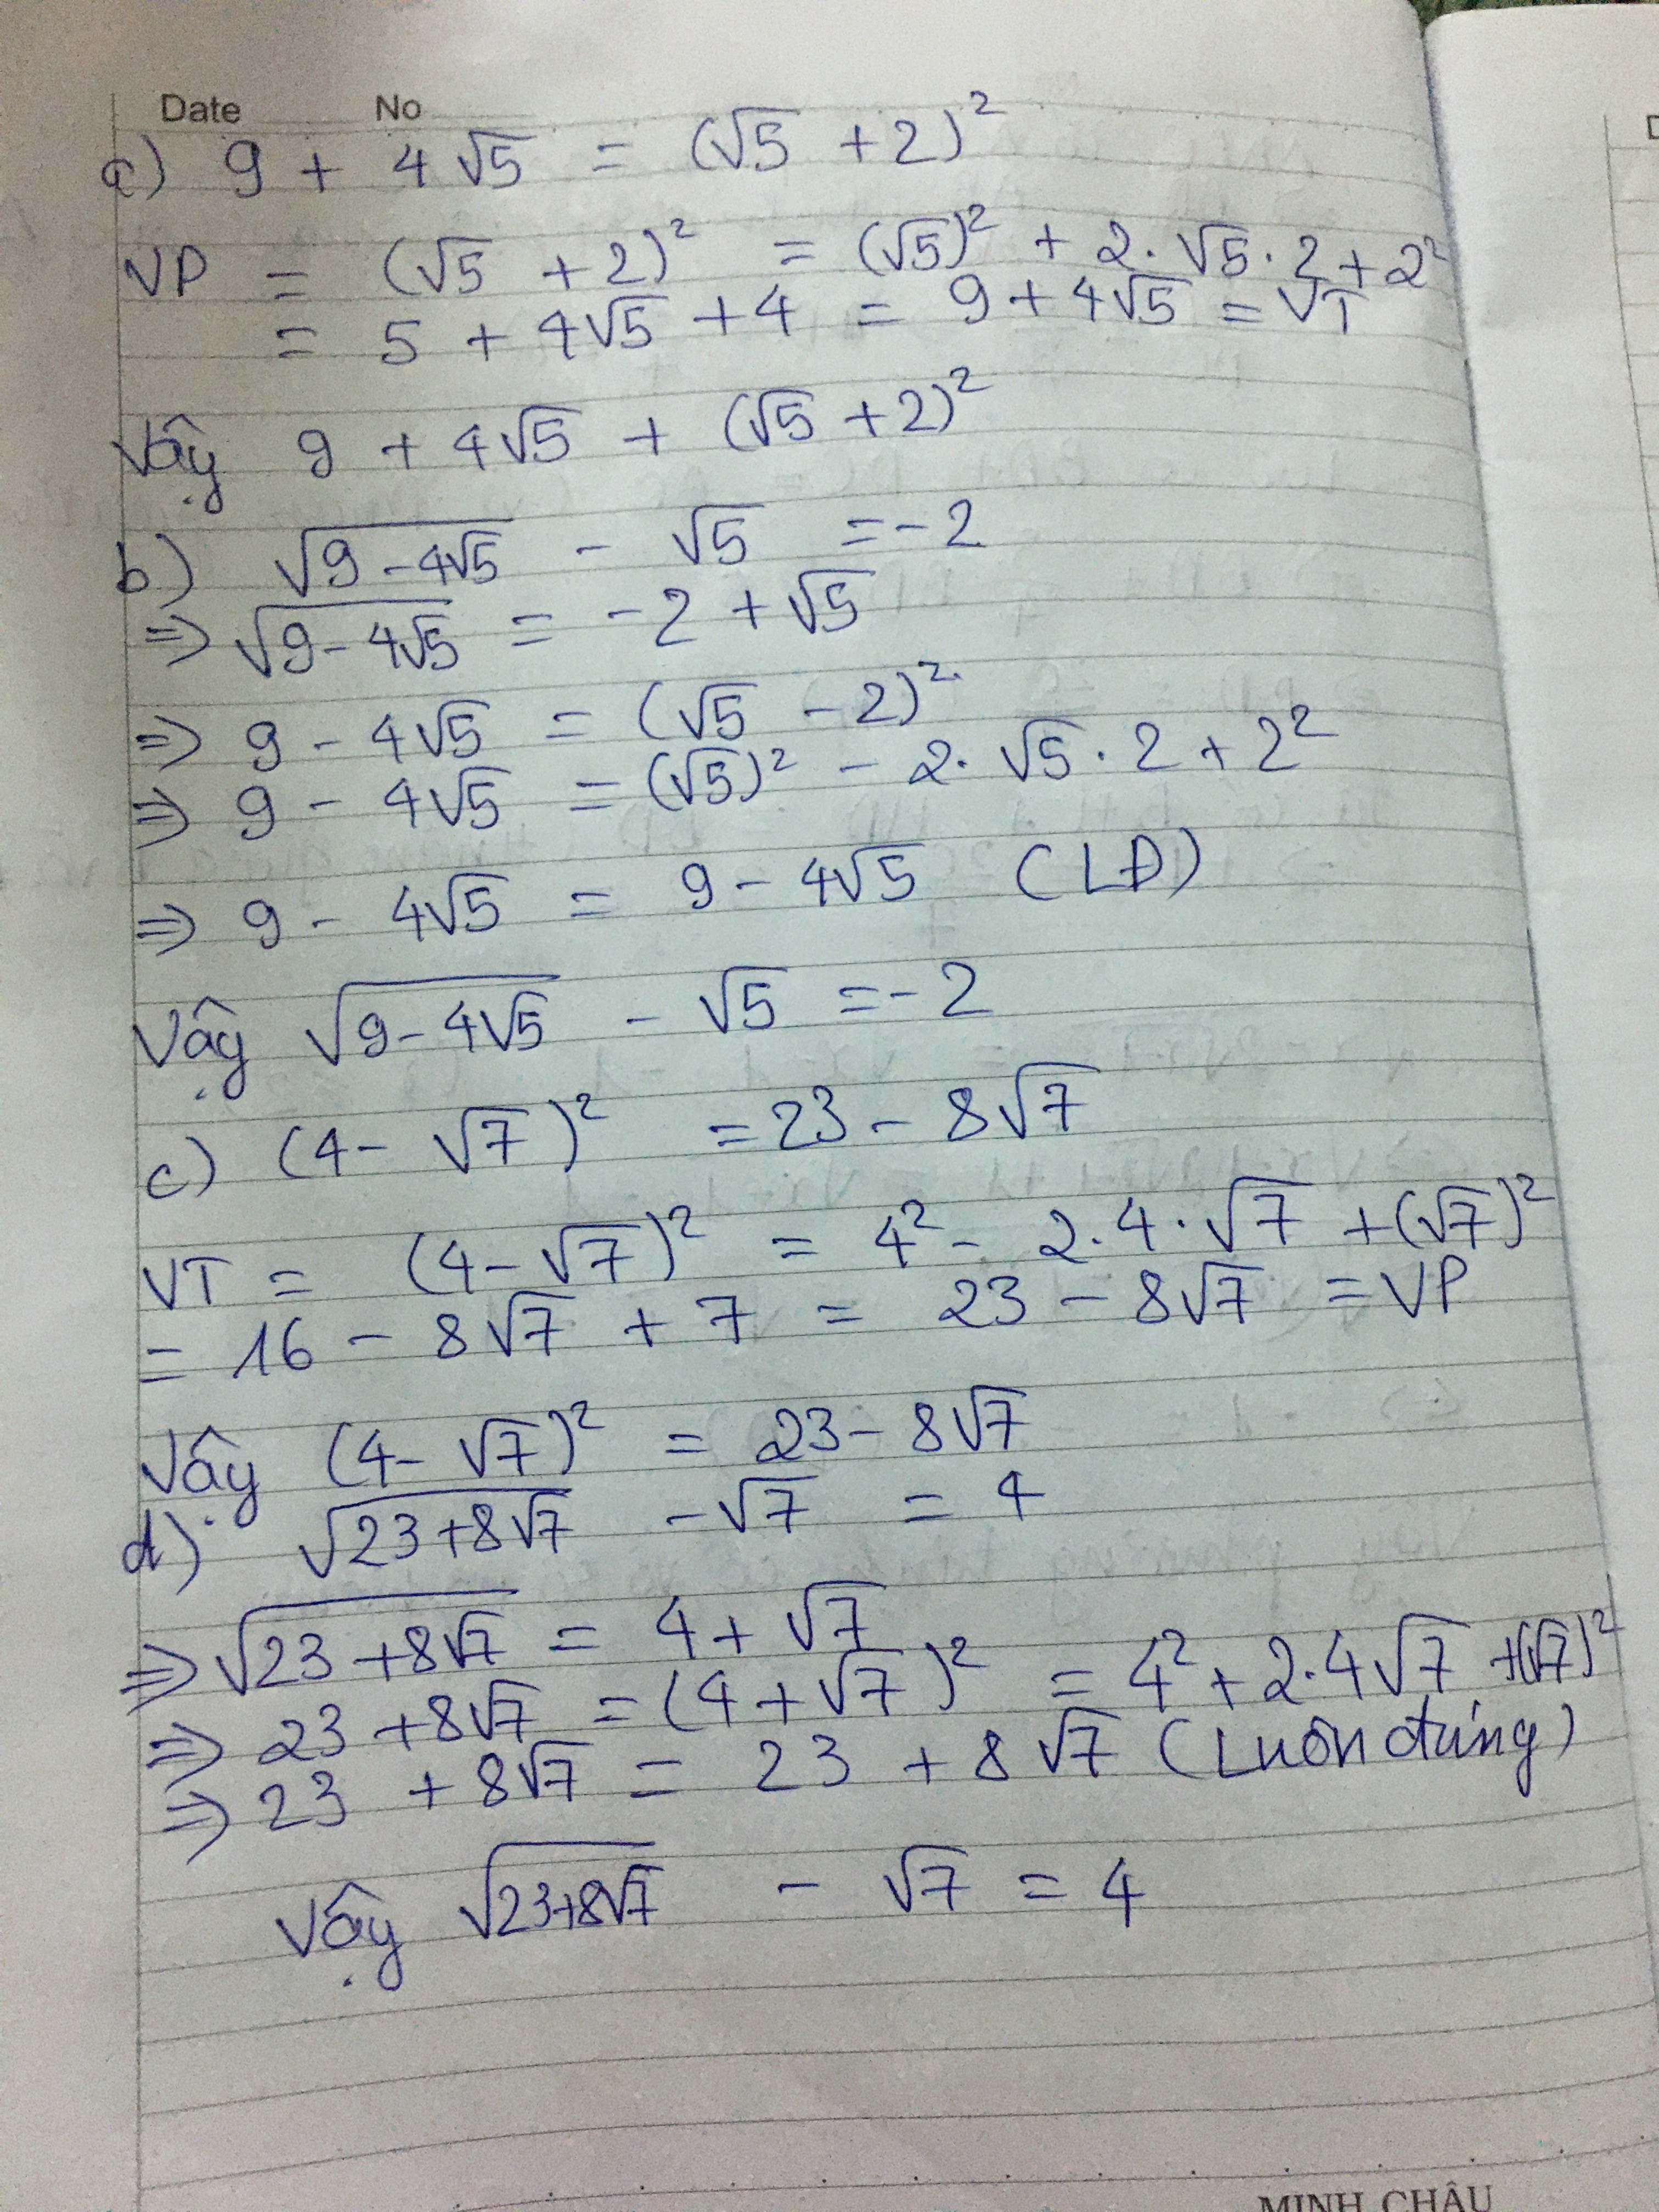 Date No
a) 9 + 4√5 = (√5 + 2)²
VP = (√5 + 2)² = (√5)² + 2.√5.2 + 2²
= 5 + 4√5 + 4 = 9 + 4√5 = VT
Vậy 9 + 4√5 + (√5 + 2)²
b) √(9 - 4√5) - √5 = -2
⇒ √(9 - 4√5) = -2 + √5
⇒ 9 - 4√5 = (√5 - 2)²
⇒ 9 - 4√5 = (√5)² - 2.√5.2 + 2²
⇒ 9 - 4√5 = 9 - 4√5 (LĐ)
Vậy √(9 - 4√5) - √5 = -2
c) (4 - √7)² = 23 - 8√7
VT = (4 - √7)² = 4² - 2.4.√7 + (√7)²
= 16 - 8√7 + 7 = 23 - 8√7 = VP
Vậy (4 - √7)² = 23 - 8√7
d) √(23 + 8√7) - √7 = 4
⇒ √(23 + 8√7) = 4 + √7
⇒ 23 + 8√7 = (4 + √7)² = 4² + 2.4√7 + (√7)²
⇒ 23 + 8√7 = 23 + 8√7 (Luôn đúng)
Vậy √(23 + 8√7) - √7 = 4
MINH CHÂU